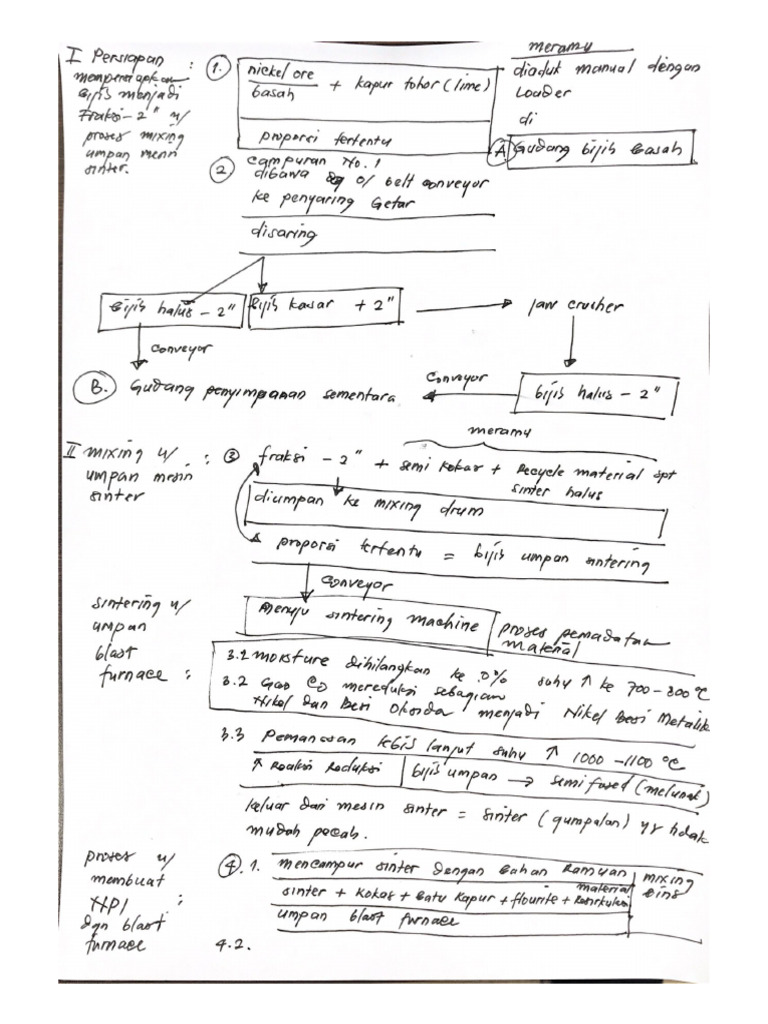 I Persiapan :
mempersiapkan
bijis menjadi
Fraksi - 2" u/
proses mixing
umpan mesin
sinter.
1. nickel ore + kapur tohor (lime)
basah
proporsi tertentu
meramu
diaduk manual dengan
Loader
di
A Gudang bijih basah
2 campuran No. 1
dibawa o/ belt conveyor
ke penyaring Getar
disaring
Bijih halus - 2"
Bijih kasar + 2"
jaw crusher
conveyor
B. Gudang penyimpanan sementara
conveyor
bijih halus - 2"
meramu
II mixing u/ :
umpan mesin
sinter
3 fraksi - 2" + semi kokas + Recycle material spt
sinter halus
diumpan ke mixing drum
proporsi tertentu = bijih umpan sintering
conveyor
sintering u/
umpan
blast
furnace :
menuju sintering machine
proses pemadatan
material
3.2 moisture dihilangkan ke 0% suhu ↑ ke 700 - 800 °C
3.2 Gas CO mereduksi sebagian
Nikel dan Besi Oksida menjadi Nikel Besi Metalik
3.3 Pemanasan lebih lanjut suhu ↑ 1000 - 1100 °C
↑ Reaksi Reduksi
bijih umpan → semi fused (melunak)
keluar dari mesin sinter = sinter (gumpalan) yg tidak
mudah pecah.
proses u/
membuat
NPI :
dgn blast
furnace
4.1. mencampur sinter dengan bahan Ramuan
sinter + kokas + batu kapur + flourite + material Resirkulasi
umpan blast furnace
mixing
bins
4.2.